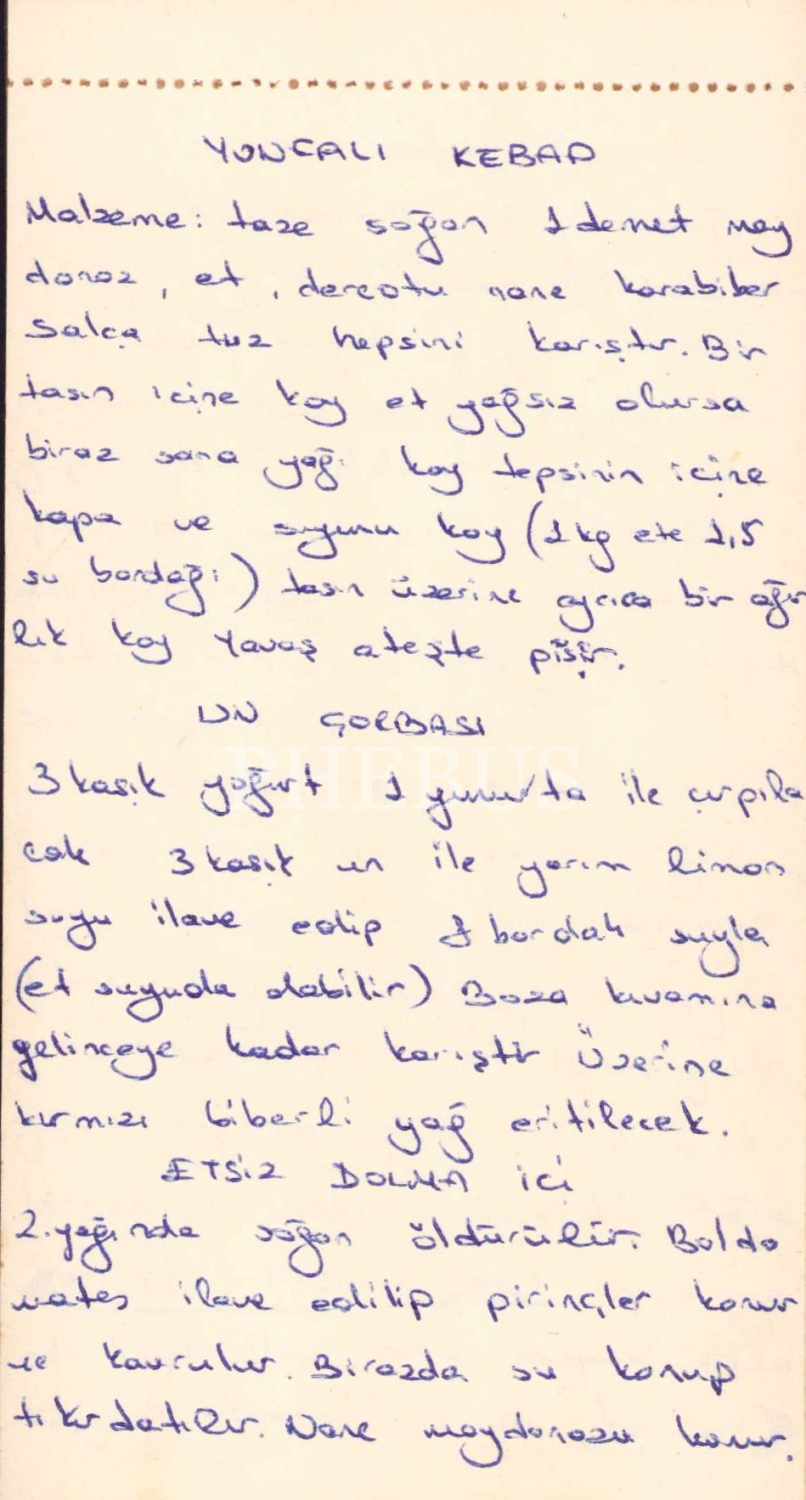 YONCALI KEBAP
Malzeme: taze soğan 1 demet may
donoz, et, dereotu nane karabiber
Salça tuz hepsini karıştır. Bir
tasın içine koy et yağsız olursa
biraz sana yağı koy tepsinin içine
kapa ve suyunu koy (1 kg ete 1,5
su bardağı) tasın üzerine ayrıca bir ağır
lık koy Yavaş ateşte pişir.
UN ÇORBASI
PHEBUS
3 kaşık yoğurt 1 yumurta ile çırpıla
cak 3 kaşık un ile yarım limon
suyu ilave edip 1 bardak suyla
(et suyuda olabilir) Boza kıvamına
gelinceye kadar karıştır Üzerine
kırmızı biberli yağ eritilecek.
ETSİZ DOLMA İÇİ
Z.yağında soğan öldürülür. Bol do
mates ilave edilip pirinçler konur
ve kavrulur. Birazda su konup
tıkırdatılır. Nane maydonozu konur.